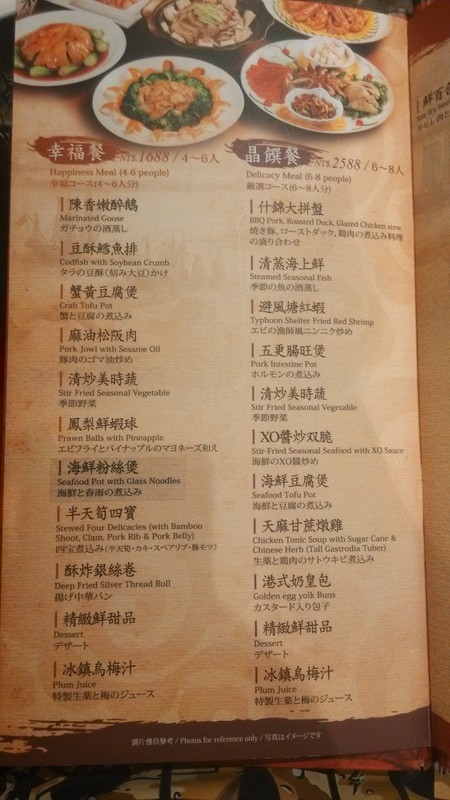 幸福餐 NT$.1688 / 4~6人
Happiness Meal (4-6 people)
幸福コース(4~6人分)
陳香嫩醉鵝
Marinated Goose
ガチョウの酒蒸し
豆酥鱈魚排
Codfish with Soybean Crumb
タラの豆酥(刻み大豆)かけ
蟹黃豆腐煲
Crab Tofu Pot
蟹と豆腐の煮込み
麻油松阪肉
Pork Jowl with Sesame Oil
豚肉のゴマ油炒め
清炒美時蔬
Stir Fried Seasonal Vegetable
季節野菜
鳳梨鮮蝦球
Prawn Balls with Pineapple
エビフライとパイナップルのマヨネーズ和え
海鮮粉絲煲
Seafood Pot with Glass Noodles
海鮮と春雨の煮込み
半天筍四寶
Stewed Four Delicacies (with Bamboo
Shoot, Clam, Pork Rib & Pork Belly)
四宝煮込み(半天筍・カキ・スペアリブ・豚モツ)
酥炸銀絲卷
Deep Fried Silver Thread Roll
揚げ中華パン
精緻鮮甜品
Dessert
デザート
冰鎮烏梅汁
Plum Juice
特製生薬と梅のジュース
晶饌餐 NT$.2588 / 6~8人
Delicacy Meal (6-8 people)
厳選コース(6~8人分)
什錦大拼盤
BBQ Pork, Roasted Duck, Glazed Chicken stew
焼き豚、ローストダック、鶏肉の煮込み料理
の盛り合わせ
清蒸海上鮮
Steamed Seasonal Fish
季節の魚の酒蒸し
避風塘紅蝦
Typhoon Shelter Fried Red Shrimp
エビの漁師風ニンニク炒め
五更腸旺煲
Pork Intestine Pot
ホルモンの煮込み
清炒美時蔬
Stir Fried Seasonal Vegetable
季節野菜
XO醬炒双脆
Stir-Fried Seasonal Seafood with XO Sauce
海鮮のXO醤炒め
海鮮豆腐煲
Seafood Tofu Pot
海鮮と豆腐の煮込み
天麻甘蔗燉雞
Chicken Tonic Soup with Sugar Cane &
Chinese Herb (Tall Gastrodia Tuber)
生薬と鶏肉のサトウキビ煮込み
港式奶皇包
Golden egg yolk Buns
カスタード入り包子
精緻鮮甜品
Dessert
デザート
冰鎮烏梅汁
Plum Juice
特製生薬と梅のジュース
圖片僅供參考 / Photos for reference only / 写真はイメージです